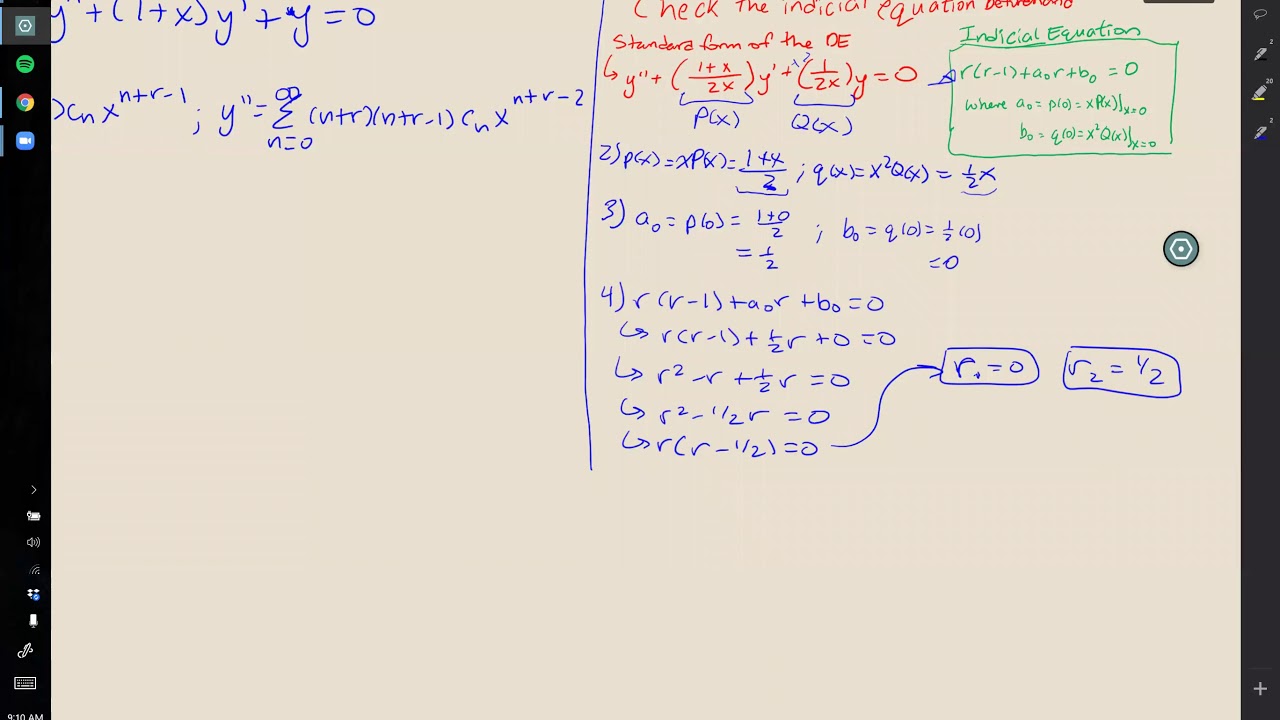 y''+(1+x)y'+y=0
)cₙx^(n+r-1) ; y''=∑_(n=0)^∞ (n+r)(n+r-1)cₙx^(n+r-2)
Check the indicial equation beforehand
Standard form of the DE
↳ y''+((1+x)/2x)y'+(1/2x)y=0
P(x) Q(x)
Indicial Equation
r(r-1)+a₀r+b₀=0
where a₀=p(0)=xP(x)|ₓ₌₀
b₀=q(0)=x²Q(x)|ₓ₌₀
2) p(x)=xP(x)=(1+x)/2 ; q(x)=x²Q(x)=1/2 x
3) a₀=p(0)=(1+0)/2 ; b₀=q(0)=1/2(0)
=1/2 =0
4) r(r-1)+a₀r+b₀=0
↳ r(r-1)+1/2r+0=0
↳ r²-r+1/2r=0
↳ r²-1/2r=0
↳ r(r-1/2)=0
r₁=0 r₂=1/2
9:10 AM